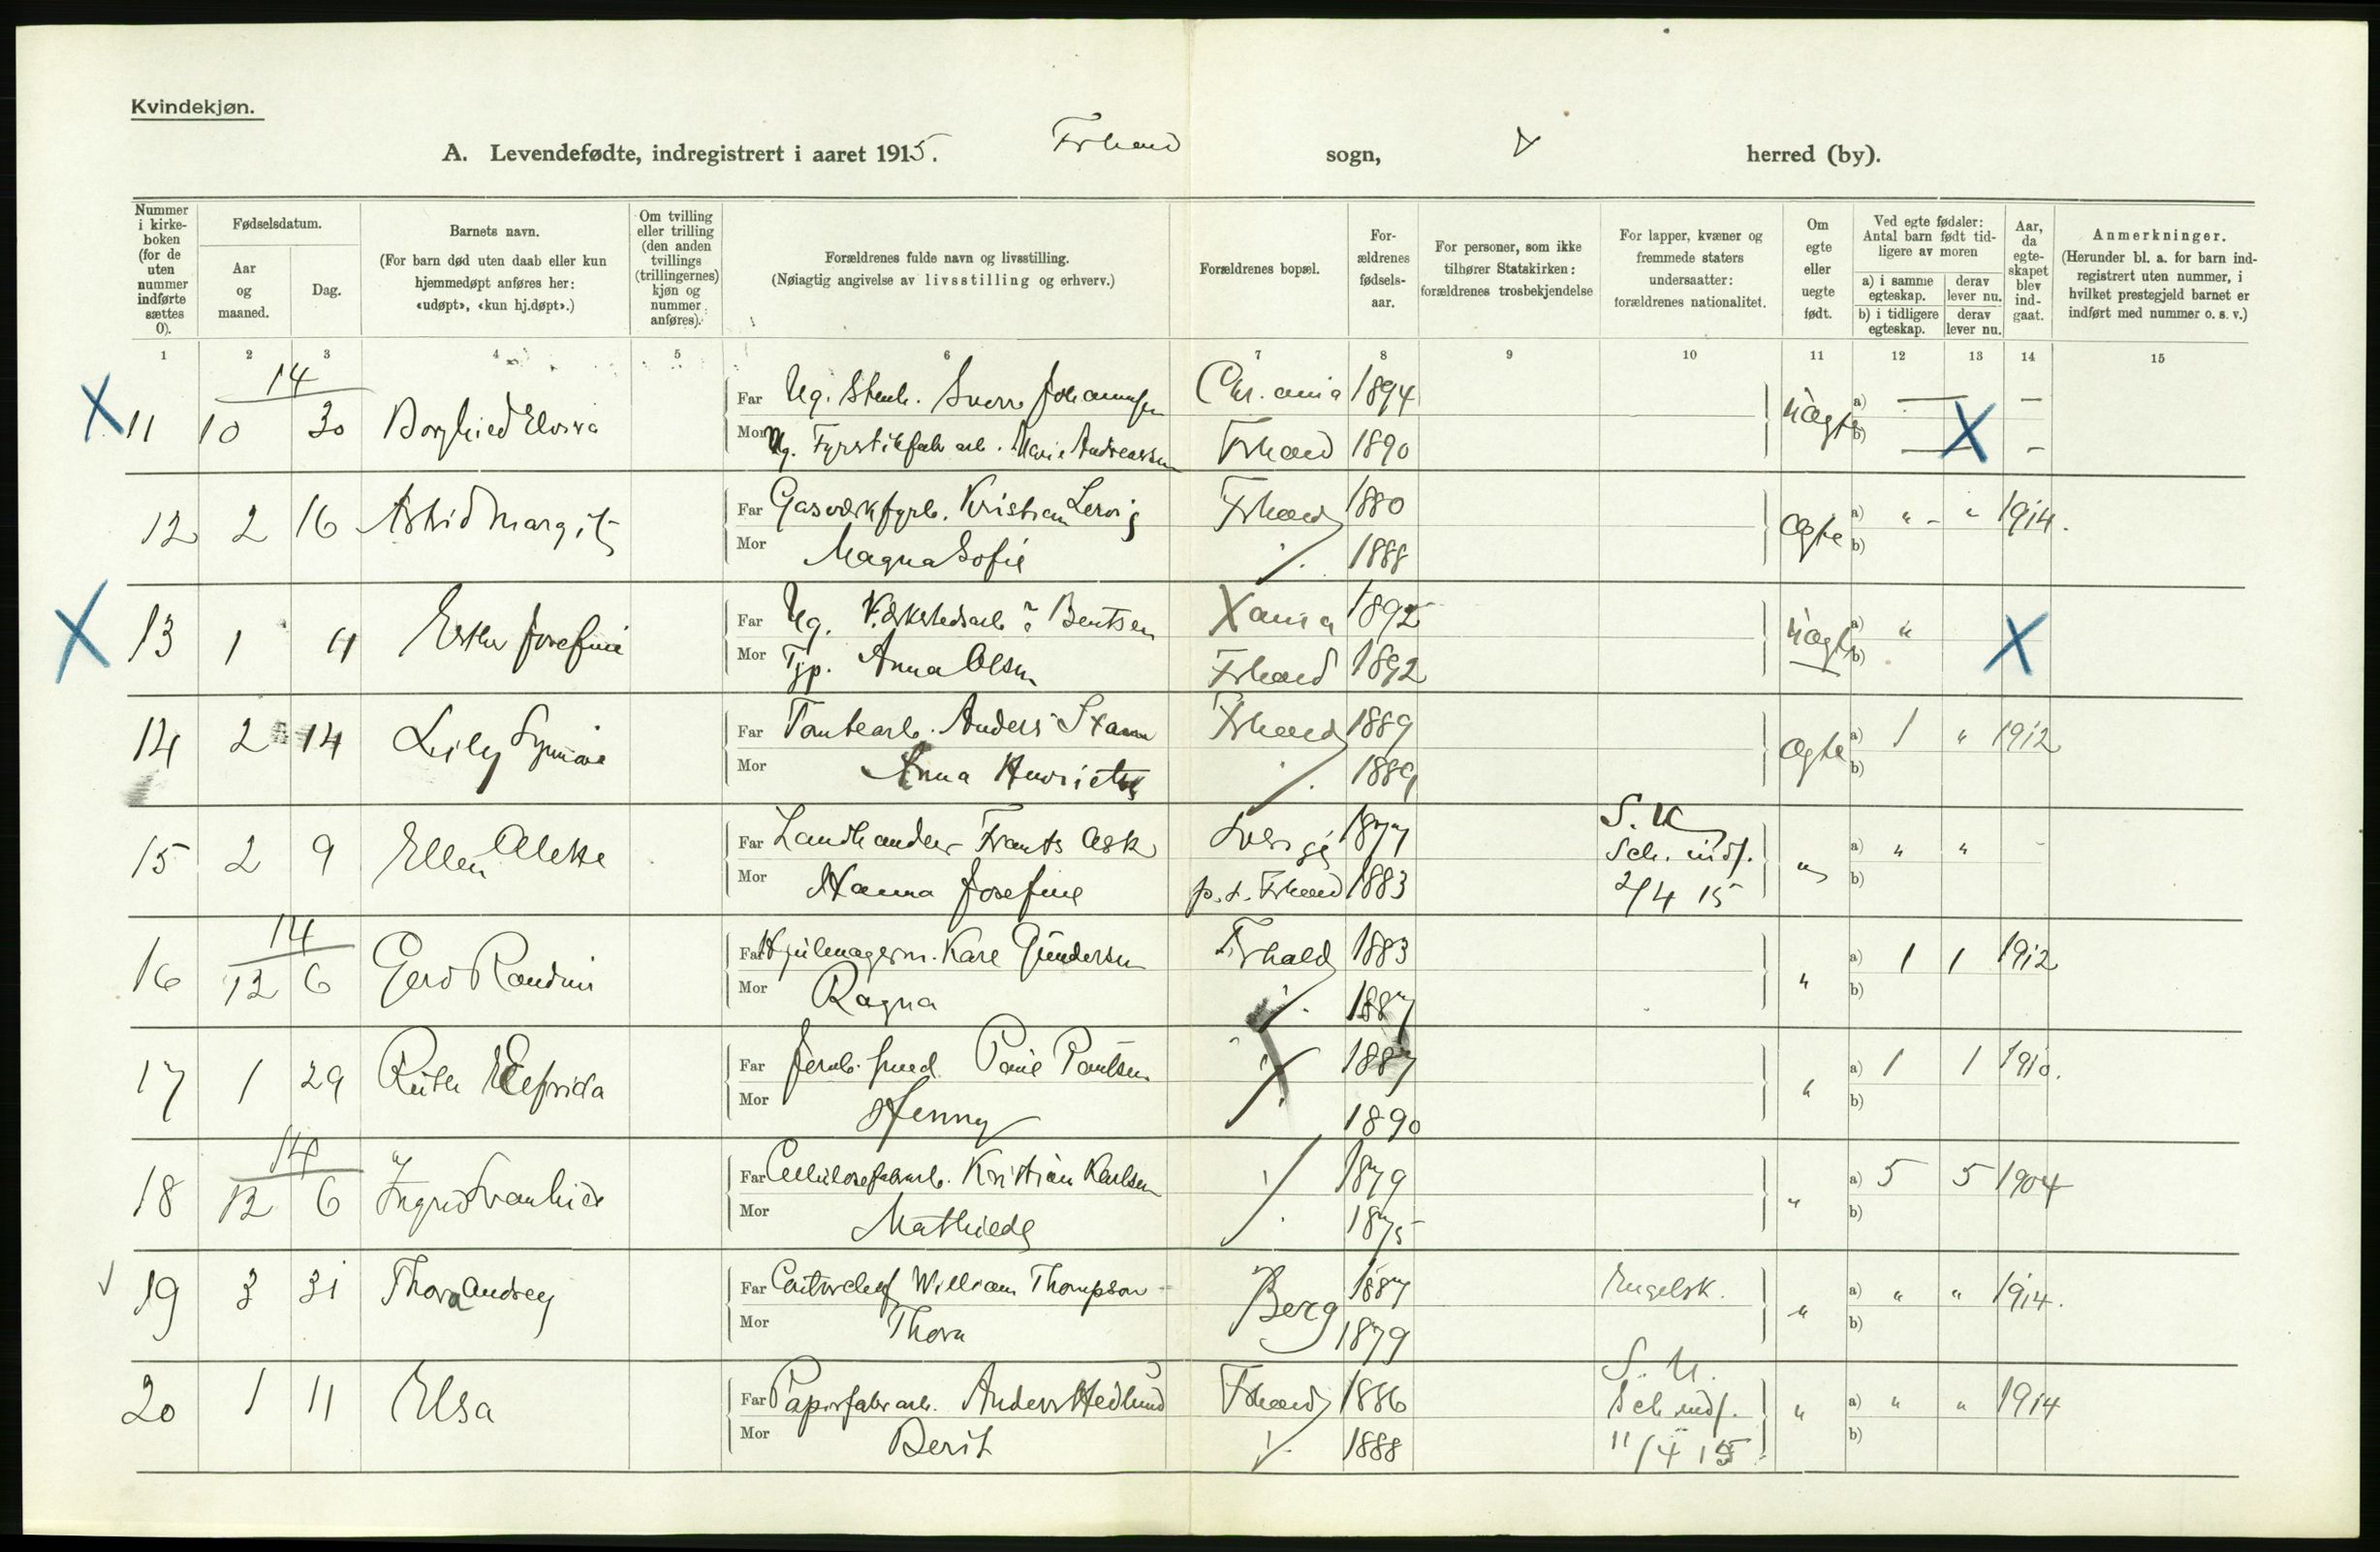 Kvindekjøn.
A. Levendefødte, indregistrert i aaret 1915. Frhald sogn, herred (by).
Nummer i kirkeboken (for de uten nummer indførte sættes 0).
Fødselsdatum.
Aar og maaned.
Dag.
Barnets navn.
(For barn død uten daab eller kun hjemmedøpt anføres her: «udøpt», «kun hj.døpt».)
Om tvilling eller trilling (den anden tvillings (trillingernes) kjøn og nummer anføres).
Forældrenes fulde navn og livsstilling.
(Nøiagtig angivelse av livsstilling og erhverv.)
Forældrenes bopæl.
Forældrenes fødselsaar.
For personer, som ikke tilhører Statskirken: forældrenes trosbekjendelse
For lapper, kvæner og fremmede staters undersaatter: forældrenes nationalitet.
Om egte eller uegte født.
Ved egte fødsler: Antal barn født tidligere av moren
a) i samme egteskap. derav lever nu.
b) i tidligere egteskap. derav lever nu.
Aar, da egteskapet blev indgaat.
Anmerkninger.
(Herunder bl. a. for barn indregistrert uten nummer, i hvilket prestegjeld barnet er indført med nummer o. s. v.)
1 2 3 4 5 6 7 8 9 10 11 12 13 14 15
14
X 11 10 30 Borghild Elvira Far Ug. Sverre Johannsen Chr.ania 1894 uægte a) — —
Mor Ug. Fyrstikfab arb. Marie Andreassen Frhald 1890 b) — X —
12 2 16 Astrid Margit Far Gasverkfyrb. Kristian Lervig Frhald 1880 ægte a) " - " 1914.
Mor Magna Sofie 1888 b)
X 13 1 4 Esther Josefine Far Ug. Værkstedsarb ? Bentsen Xania 1892 uægte a) " X
Mor Typ. Anna Olsen Frhald 1892 b)
14 2 14 Lily Synnøve Far Tomtearb. Anders Stamn Frhald 1889 ægte a) 1 " 1912
Mor Anna Henriette 1889 b)
15 2 9 Ellen Far Landhandler Frants Ask Sverige 1877 S. U. Sch. indf. " a) " " -
Mor Hanna Josefine p.t. Frhald 1883 2/4 15 b)
14
16 12 6 Gerd Randini Far Hjulmagerm. Karl Gundersen Frhald 1883 " a) 1 1 1912
Mor Ragna 1887 b)
17 1 29 Ruth Elfrida Far Jernb. smed Paul Paulsen 1887 " a) 1 1 1910.
Mor Henny 1890 b)
14
18 12 6 Ingrid Svanhild Far Cellulosefabrarb. Kristian Karlsen 1879 " a) 5 5 1904
Mor Mathilde 1875 b)
19 3 31 Thora Audrey Far Contorchef William Thompson Berg 1887 Engelsk. " a) " " 1914.
Mor Thora 1879 b)
20 1 11 Elsa Far Papirfabr arb. Anders Hedlund Frhald 1886 S. U. Sch indf. " a) " " 1914
Mor Berit 1888 11/4 15 b)